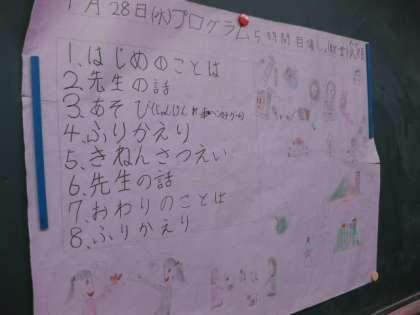 月28日(水)プログラム5時間目
1.はじめのことば
2.先生の話
3.あそび
4.ふりかえり
5.きねんさつえい
6.先生の話
7.おわりのことば
8.ふりかえり